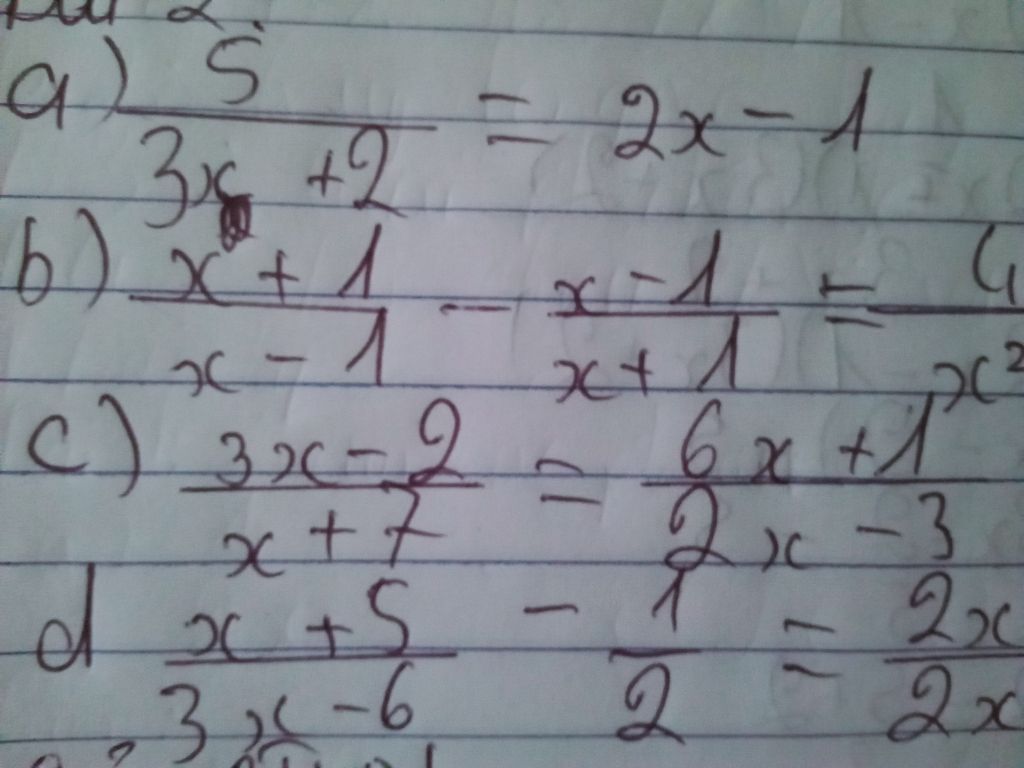 a) 5/(3x + 2) = 2x - 1
b) (x + 1)/(x - 1) - (x - 1)/(x + 1) = 4/x²
c) (3x - 2)/(x + 7) = (6x + 1)/(2x - 3)
d (x + 5)/(3x - 6) - 1/2 = 2x/2x